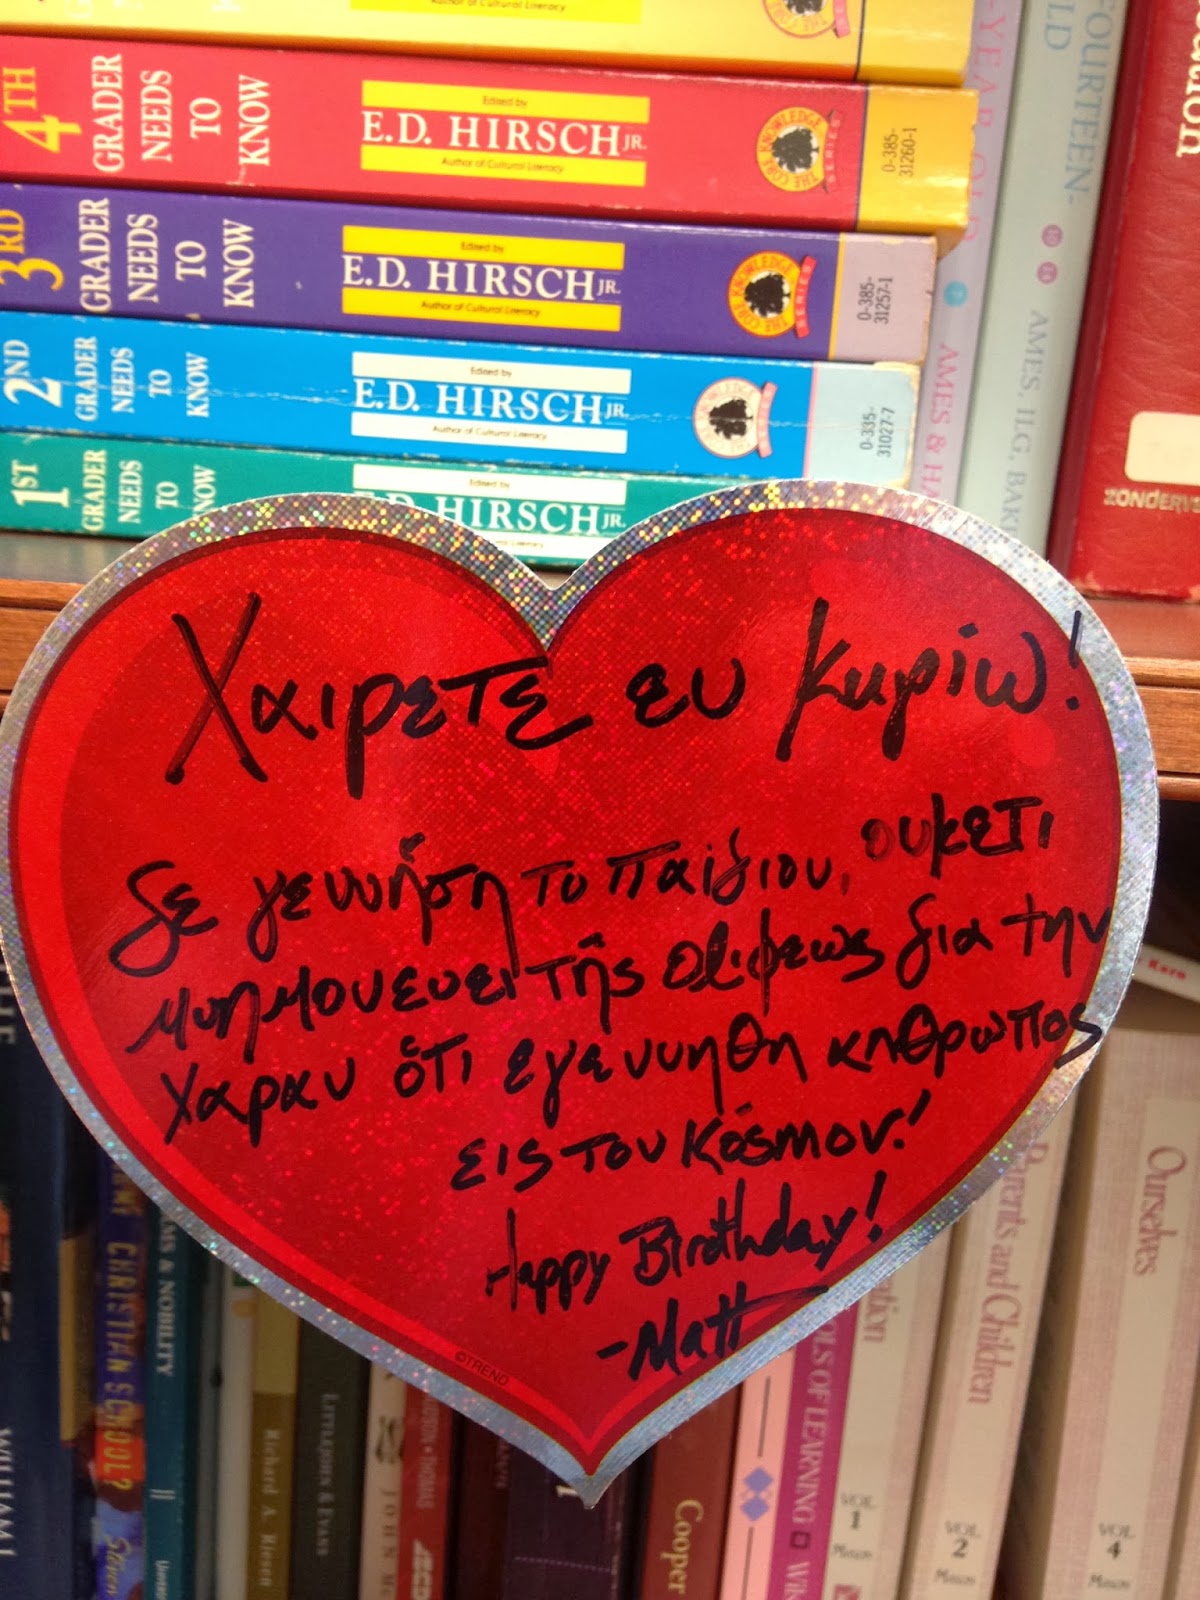 Author of Cultural Literacy
4TH GRADER NEEDS TO KNOW
Edited by
E.D. HIRSCH JR.
Author of Cultural Literacy
THE CORE KNOWLEDGE SERIES
0-385-31260-1
3RD GRADER NEEDS TO KNOW
Edited by
E.D. HIRSCH JR.
Author of Cultural Literacy
THE CORE KNOWLEDGE SERIES
0-385-31257-1
2ND GRADER NEEDS TO KNOW
Edited by
E.D. HIRSCH JR.
Author of Cultural Literacy
0-335-31027-7
1ST GRADER NEEDS TO KNOW
Edited by
E.D. HIRSCH JR.
-YEAR-OLD
AMES & HA
FOURTEEN-
LD
AMES, ILG, BAK
ZONDERV
Χαιρετε εν κυρίω!
δε γεννήση το παίδιον, ουκετι
μνημονευει τῆς θλιψεως δια την
χαραν ὅτι εγεννηθη ανθρωπος
εις τον κόsmον!
Happy Birthday!
-Matt
©TREND
Kero
WILLIAM
CHRISTIAN SCHOOL?
AMS & NOBILITY
Richard A. Riesen
& EVANS
JOHN M
THOMAS
Cooper
OLS OF LEARNING
VOL 1 Mason
Parents and Children
VOL 2 Mason
Ourselves
VOL 4 Mason